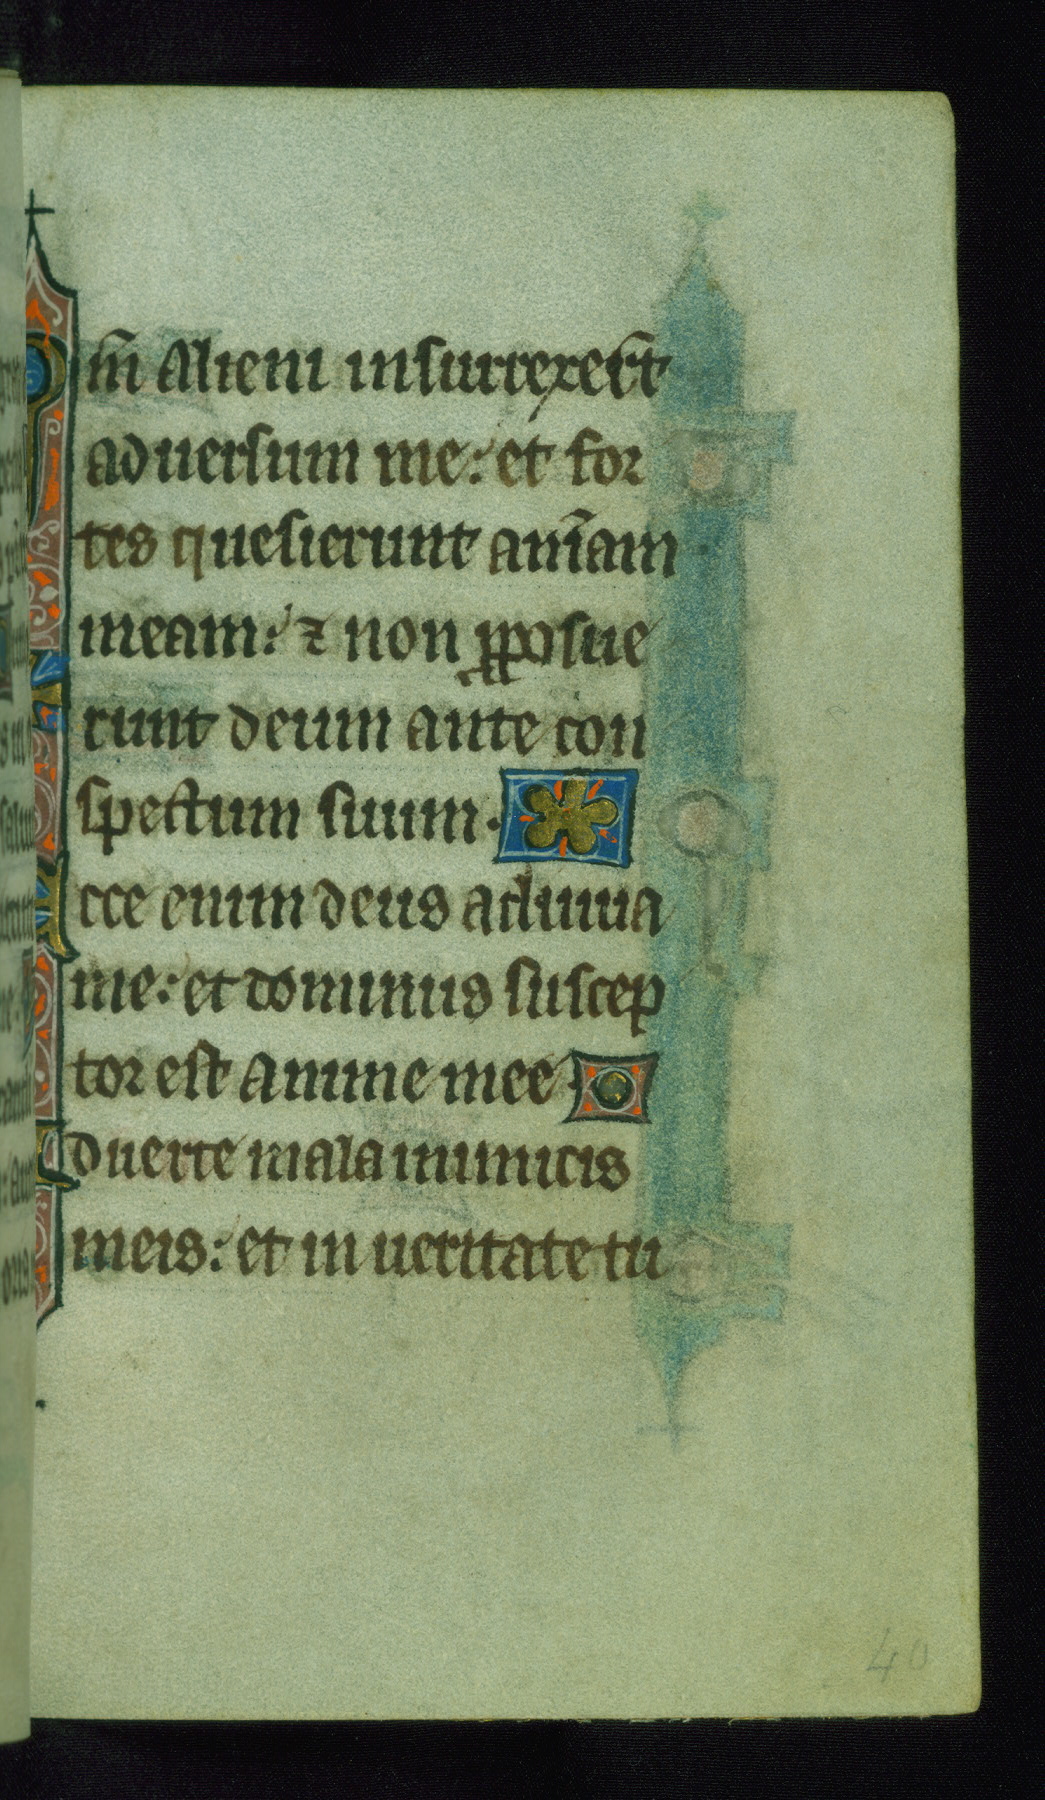 m̄ Alieni insurrexer̄t
aduersum me: et for
tes quesierunt anīam
meam: ⁊ non ꝓposue
runt deum ante con
spectum suum.
cce enim deus adiuua
me: et dominus suscep
tor est anime mee
duerte mala inimicis
meis: et in ueritate tu
40